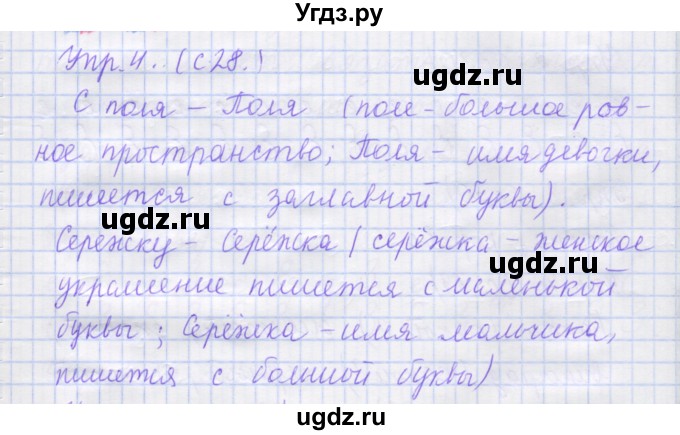 Угдз.ру
Упр.4. (с28.)
С поля – Поля (поле – большое ров-
ное пространство; Поля – имя девочки,
пишется с заглавной буквы).
Серёжку – Серёжка (серёжка – женское
украшение пишется с маленькой
буквы; Серёжка – имя мальчика,
пишется с большой буквы)
ugdz.ru
ugdz.ru
ugdz.ru
ugdz.ru
ugdz.ru